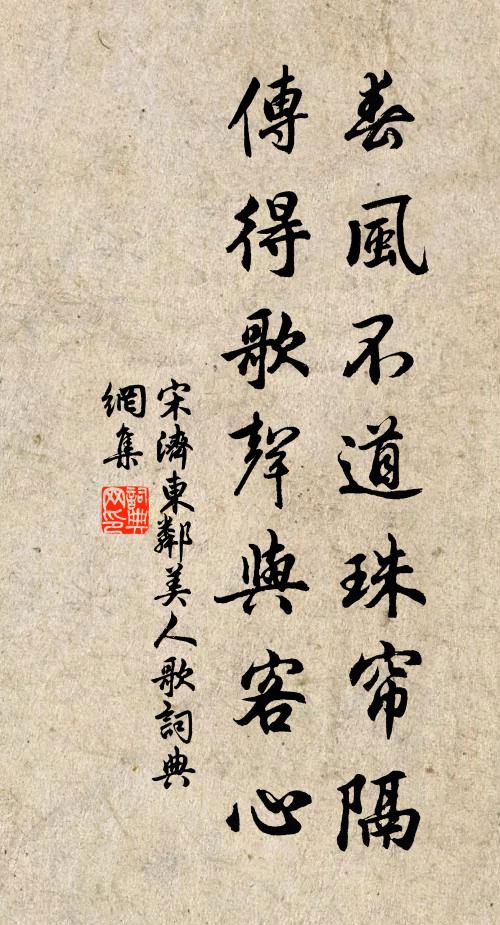 春風不道珠帘隔
傳得歌聲與客心
宋濟東鄰美人歌詞典
網集
詞典
网印